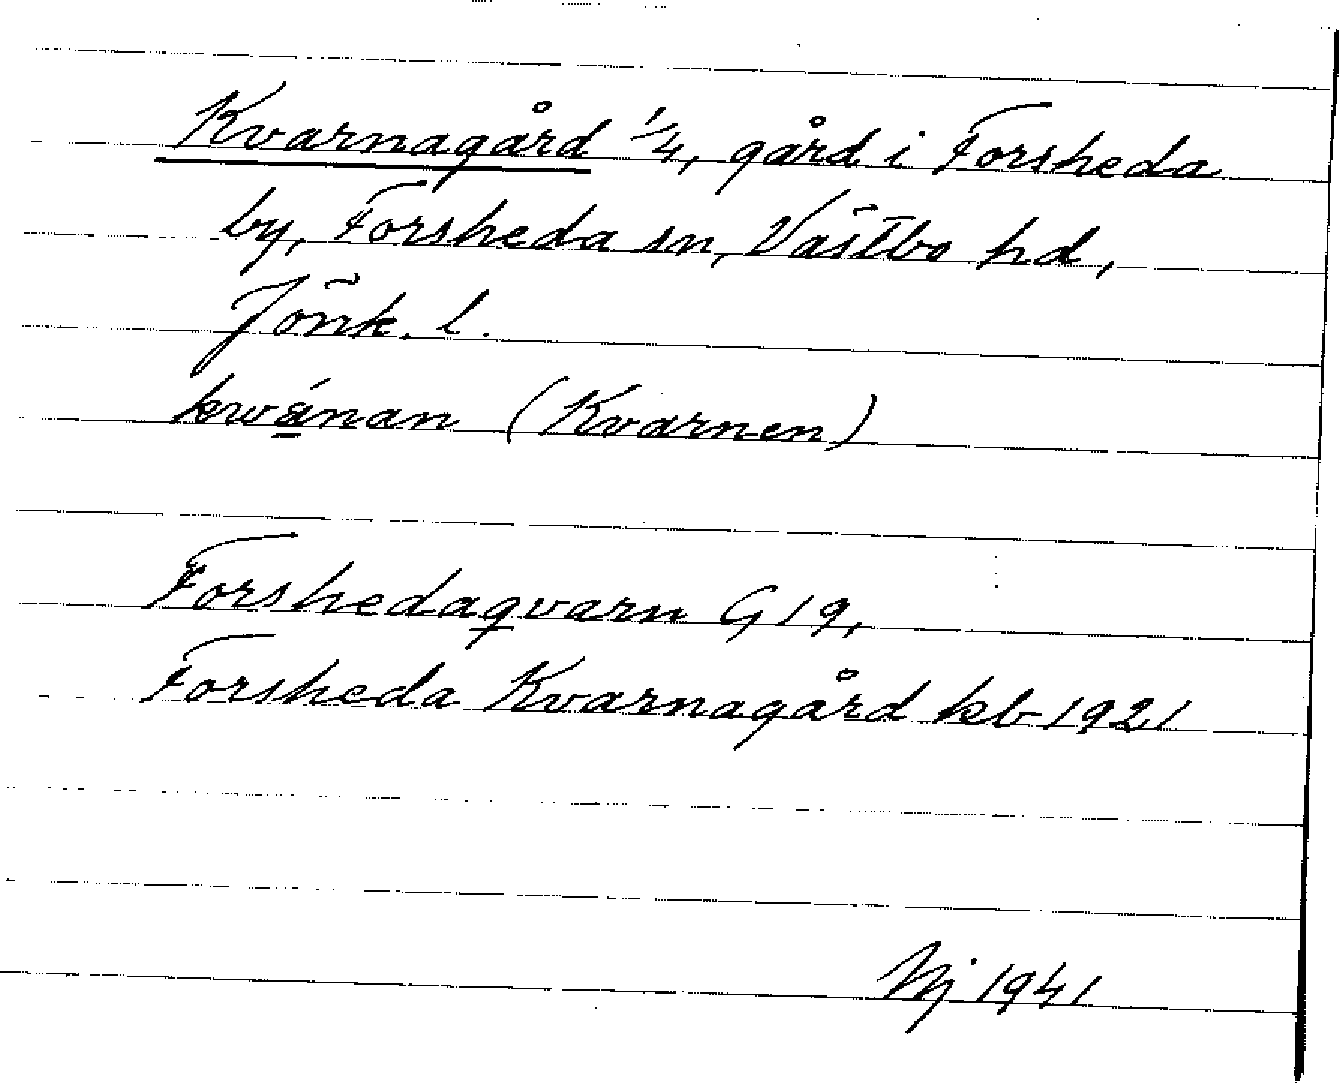 Kvarnagård 1/4, gård i Forsheda
by, Forsheda sn, Västbo hd,
Jönk. l.
kwánan (Kvarnen)
Forshedaqvarn G 19,
Forsheda Kvarnagård kb 1921
1941